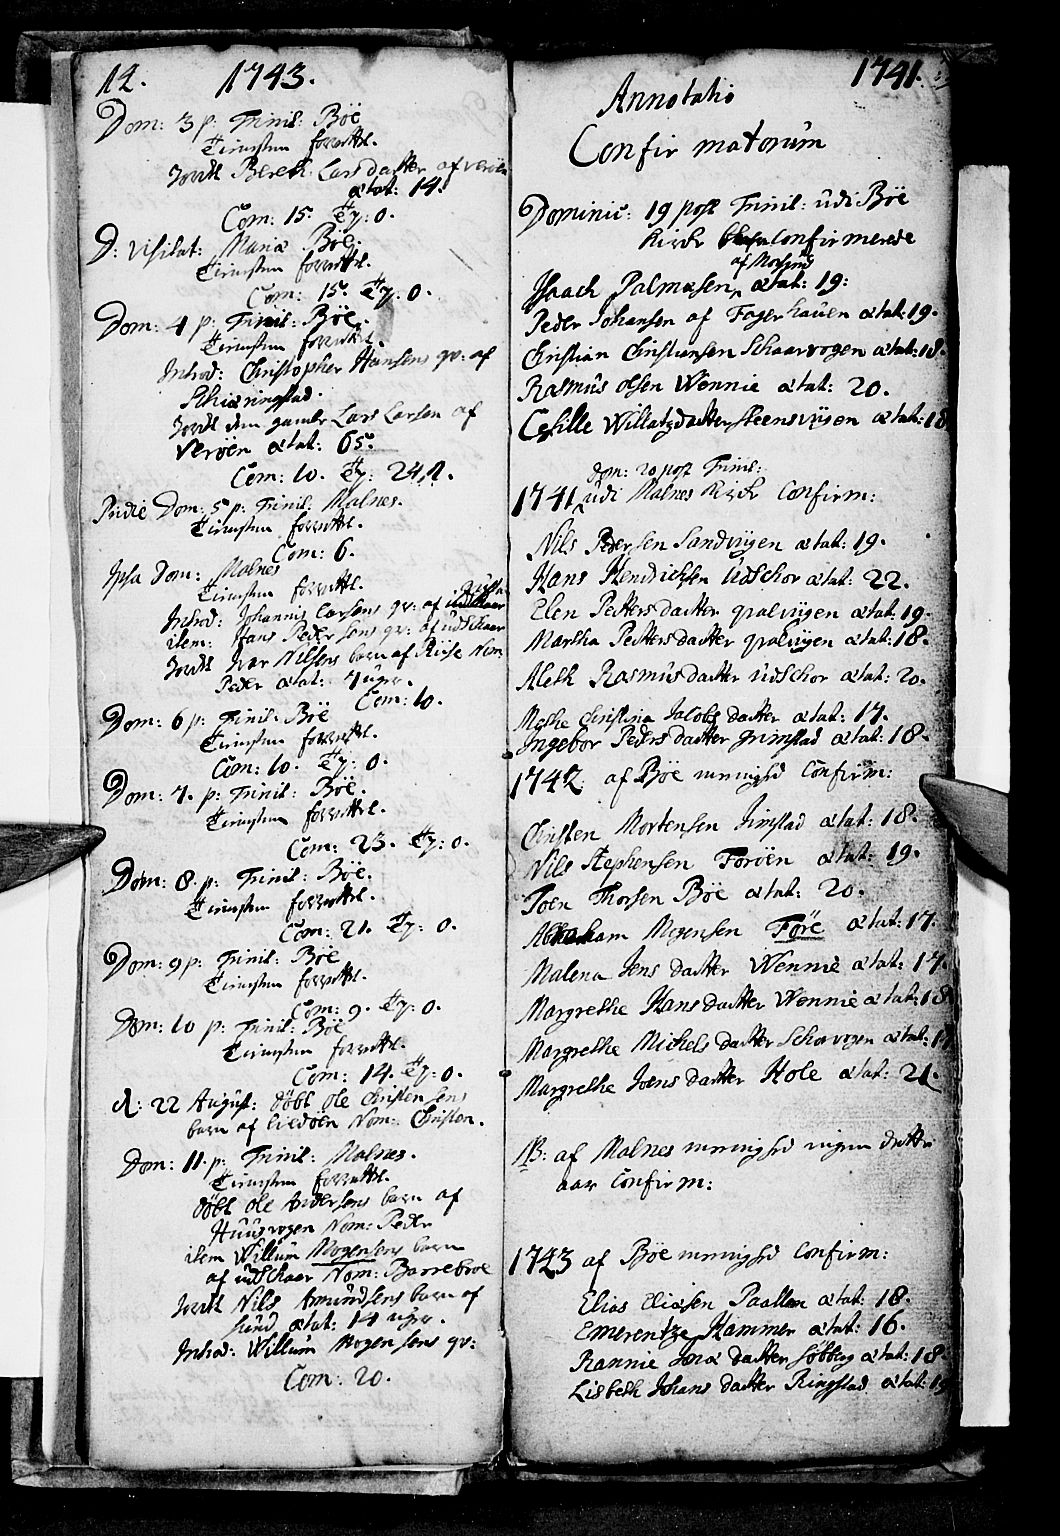 12. 1743.
Dom: 3 p: Trinit: Böe
Tienesten forrettet.
Jordt Bereth Lars datter af Veröen
ætat: 14.
Com: 15. Ty: 0.
D: Visitat: Mariæ Böe.
Tienesten forrettet.
Com: 15. Ty: 0.
Dom: 4 p: Trinit: Böe.
Tienesten forrettet.
Introd: Christopher Hansens qv: af
Schieringstad.
Jordt den gamle Lars Larsen af
Veröen ætat: 65.
Com: 10. Ty: 24
Pridie Dom: 5 p: Trinit: Malnes.
Tienesten forrettet.
Com: 6.
Ipsa Dom: Malnes
Tienesten forrettet.
Introd: Johannis Larsens qv: af
item: Hans Peder sens qv: af udSchaar
Jordt Ivar Nilsens barn af Riise Nom:
Peder ætat: 7 uger.
Com: 10.
Dom: 6 p: Trinit: Böe
Tienesten forrettet.
Com: 10. Ty: 0.
Dom: 7. p: Trinit: Böe.
Tienesten forrettet.
Com: 23. Ty: 0.
Dom: 8. p: Trinit: Böe.
Tienesten forrettet.
Com: 21. Ty: 0.
Dom: 9 p: Trinit: Böe
Tienesten forrettet.
Com: 9. Ty: 0.
Dom: 10 p: Trinit: Böe
Tienesten forrettet.
Com: 14. Ty: 0.
d: 22 August: döbt ole Christensens
barn af Nom: Christen.
Dom: 11. p: Trinit: Malnes.
Tienesten forrettet.
döbt ole Andersens barn af
Huusvogen Nom: Peder
item Willum Mogensens barn
af udSchaar Nom: Barrebroe
Jordt Nils Amundsens barn af
Sund ætat: 14 uger.
Introd: Willum Mogensens qv:
Com: 20.
1741.
Annotatio
Confirmatorum
Dominic: 19 post Trinit: udi Böe
Kirche confirmerede
Isaach Palmesen af ætat: 19:
Peder Johansen af Fagerhauen ætat: 19.
Christian Christiansen Schaarvogen ætat: 18.
Rasmus olsen Wennie ætat: 20.
Cesille Willatzdatter Steensviigen ætat: 18
Dom: 20 post Trinit:
1741 udi Malnes Kirch Confirm:
Nils Pedersen Sandviigen ætat: 19.
Hans Hendrichsen UdSchor ætat: 22.
Elen Petters datter qvalviigen ætat: 19.
Martha Petters datter qvalviigen ætat: 18.
Aleth Rasmus datter UdSchor ætat: 20.
Mette Christina Jacobs datter ætat: 17.
Ingebor Peders datter grimstad ætat: 18.
1742 af Böe menighed Confirm:
Christen Mortensen Jinstad ætat: 18.
Nils Stephensen Foröen ætat: 19.
Joen Thorsen Böe ætat: 20.
Abraham Mogensen Före ætat: 17.
Malena Jens datter Wennie ætat: 17.
Margrethe Hans datter Wennie ætat: 18
Margrethe Michels datter Schorvogen ætat:
Margrethe Joens datter Hole ætat: 21.
NB: af Malnes menighed ingen dette
aar Confirm:
1743 af Böe menighed Confirm:
Elias Eliasen Paallen ætat: 18.
Emerentze Hammer ætat: 16.
Rannie datter Söberg ætat: 18.
Lisbeth Johans datter Ringstad ætat: 19